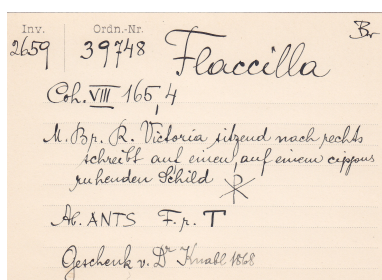 Inv. Ordn.-Nr. Br
2659 39748 Flaccilla
Coh. VIII 165, 4
M. Br. R. Victoria sitzend nach rechts
schreibt auf einen, auf einem cippus
ruhenden Schild ⳩
Ab. ANTS F. p. T
Geschenk v. Dr Knabl 1868